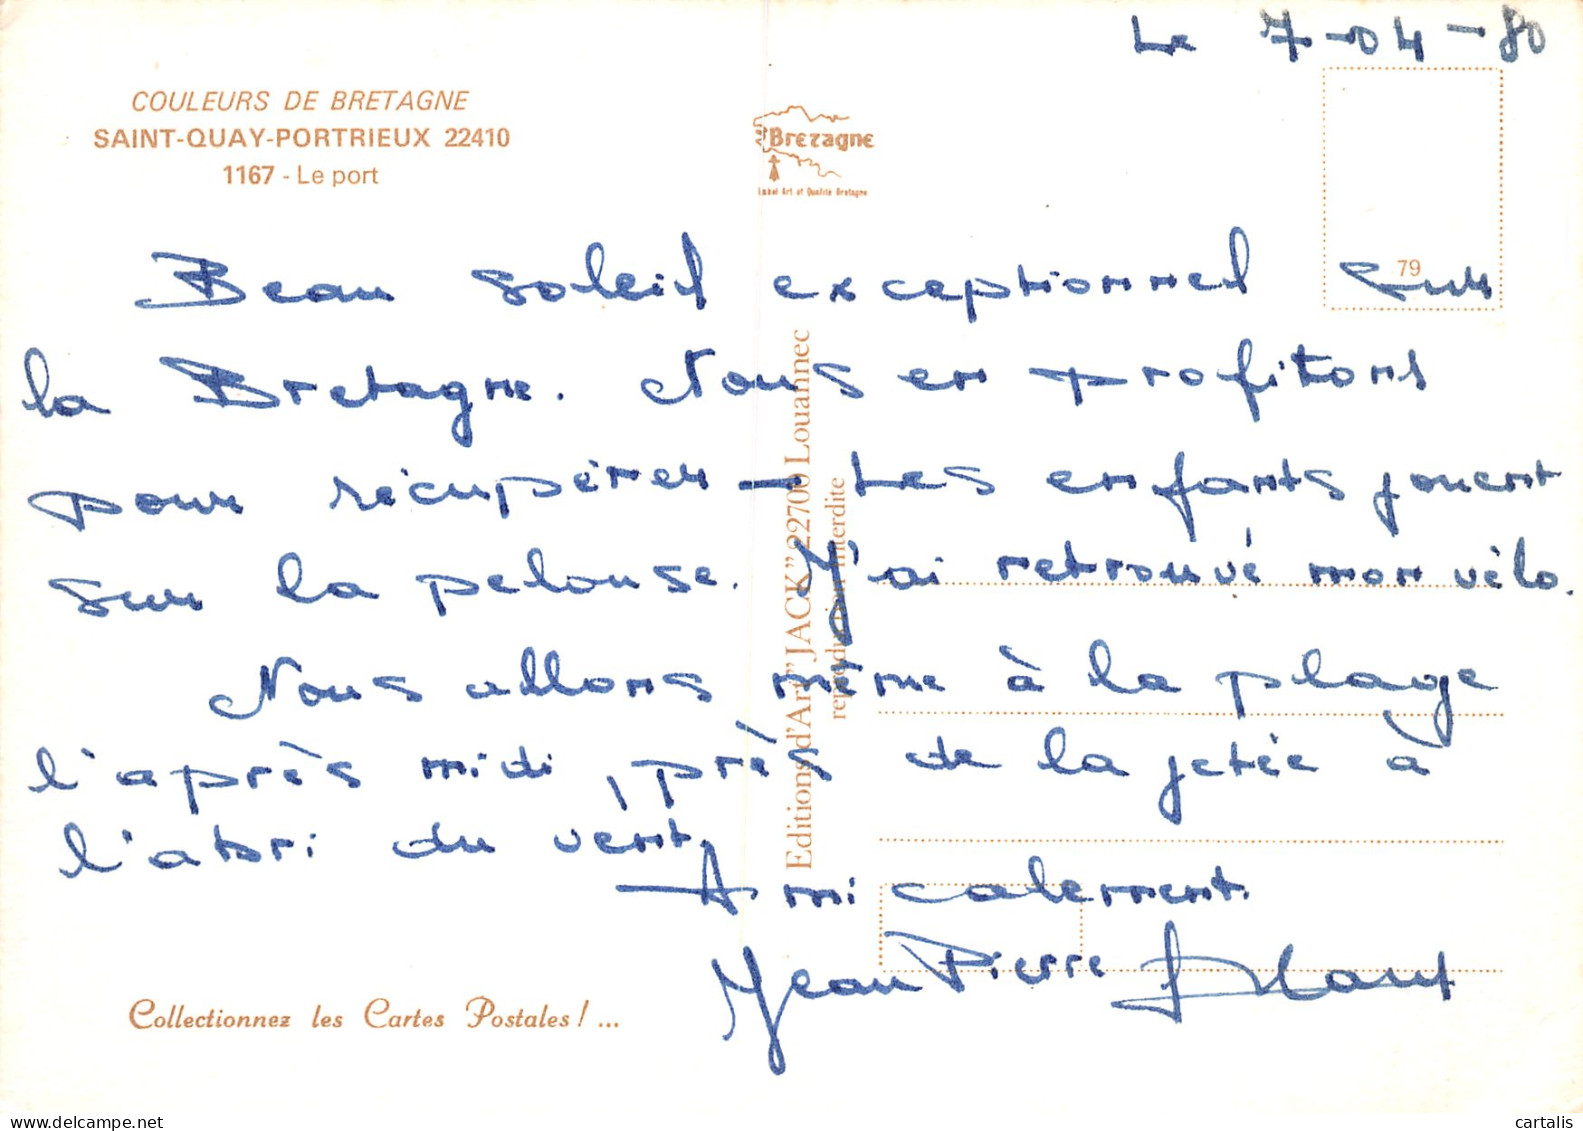 Le 7-04-80
COULEURS DE BRETAGNE
SAINT-QUAY-PORTRIEUX 22410
1167 - Le port
Bretagne
Label Art et Qualité Bretagne
79
Beau soleil exceptionnel sur
la Bretagne. Nous en profitons
pour récupérer - Les enfants jouent
sur la pelouse. J'ai retrouvé mon vélo.
Nous allons même à la plage
l'après midi, près de la jetée à
l'abri du vent.
Amicalement.
Jean Pierre
Editions d'Art "JACK" 22700 Louannec
reproduction interdite
Collectionnez les Cartes Postales ! ...
cartalis